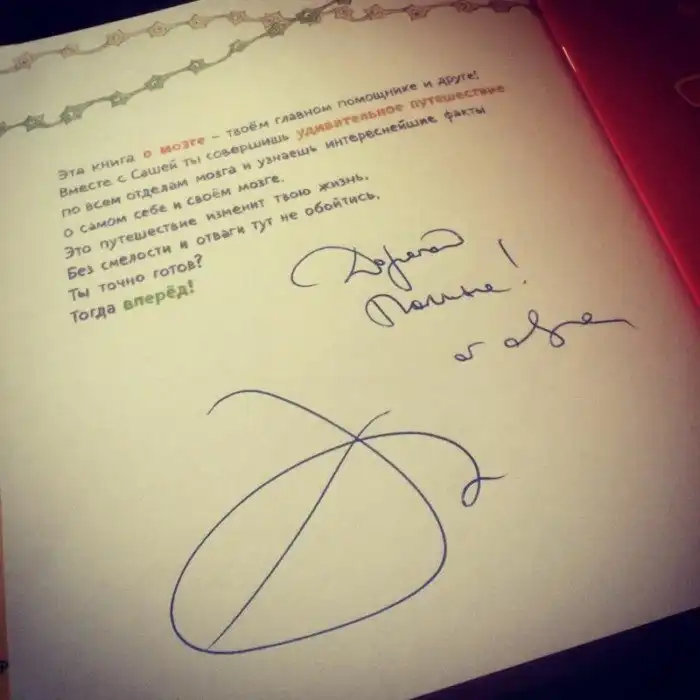 Эта книга о мозге – твоём главном помощнике и друге!
Вместе с Сашей ты совершишь удивительное путешествие
по всем отделам мозга и узнаешь интереснейшие факты
о самом себе и своём мозге.
Это путешествие изменит твою жизнь.
Без смелости и отваги тут не обойтись.
Ты точно готов?
Тогда вперёд!
Дорогой
Полине!
от